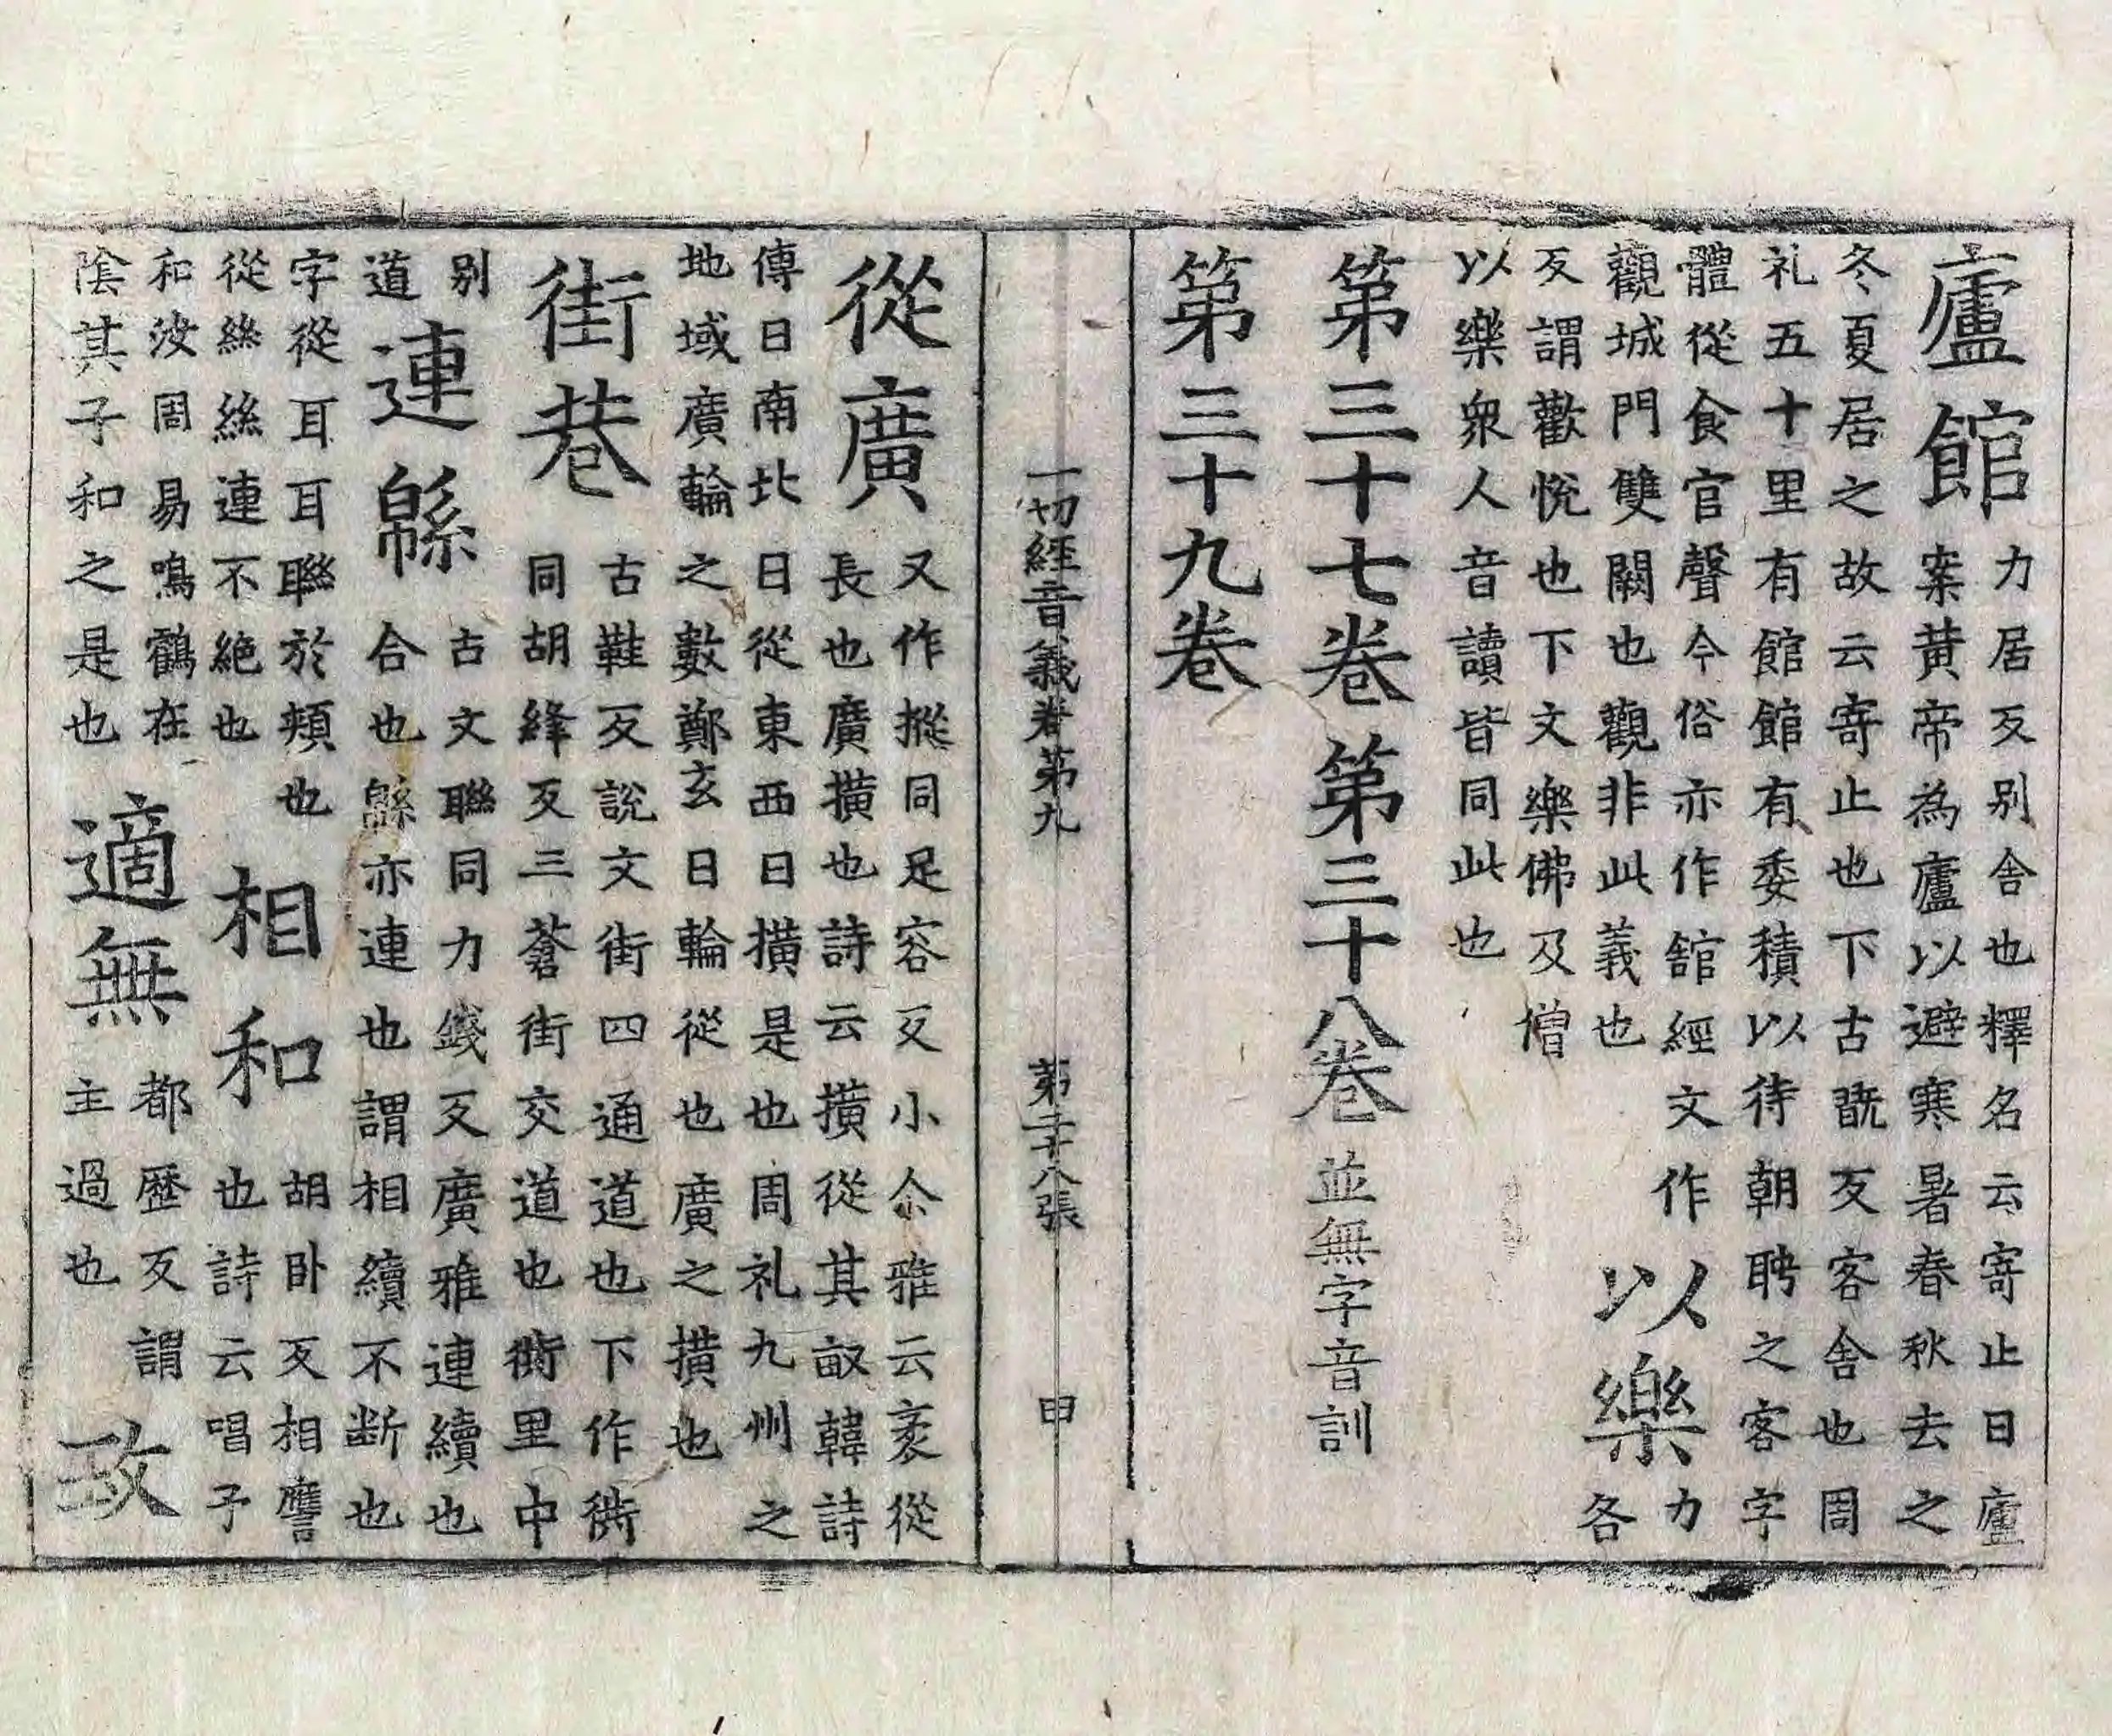 廬館
力居反別舍也釋名云寄止曰廬
案黃帝為廬以避寒暑春秋去之
冬夏居之故云寄止也下古翫反客舍也周
礼五十里有館館有委積以待朝聘之客字
體從食官聲今俗亦作舘經文作
觀城門雙闕也觀非此義也
以樂
力各
反謂歡悅也下文樂佛及僧
以樂衆人音讀皆同此也
第三十七卷 第三十八卷 並無字音訓
第三十九卷
一切經音義卷第九 第二十八張 申
從廣
又作摐同足容反小尒雅云袤從
長也廣撗也詩云撗從其畝韓詩
傳曰南北曰從東西曰撗是也周礼九州之
地域廣輪之數鄭玄曰輪從也廣之撗也
街巷
古鞋反說文街四通道也下作衖
同胡絳反三蒼街交道也衖里中
別
道
連緜
古文聯同力錢反廣雅連續也
合也緜亦連也謂相續不断也
字從耳耳聯於頰也
從絲絲連不絕也
相和
胡卧反相譍
也詩云唱予
和汝周易鳴鶴在
陰其子和之是也
適無
都歷反謂
主適也
政